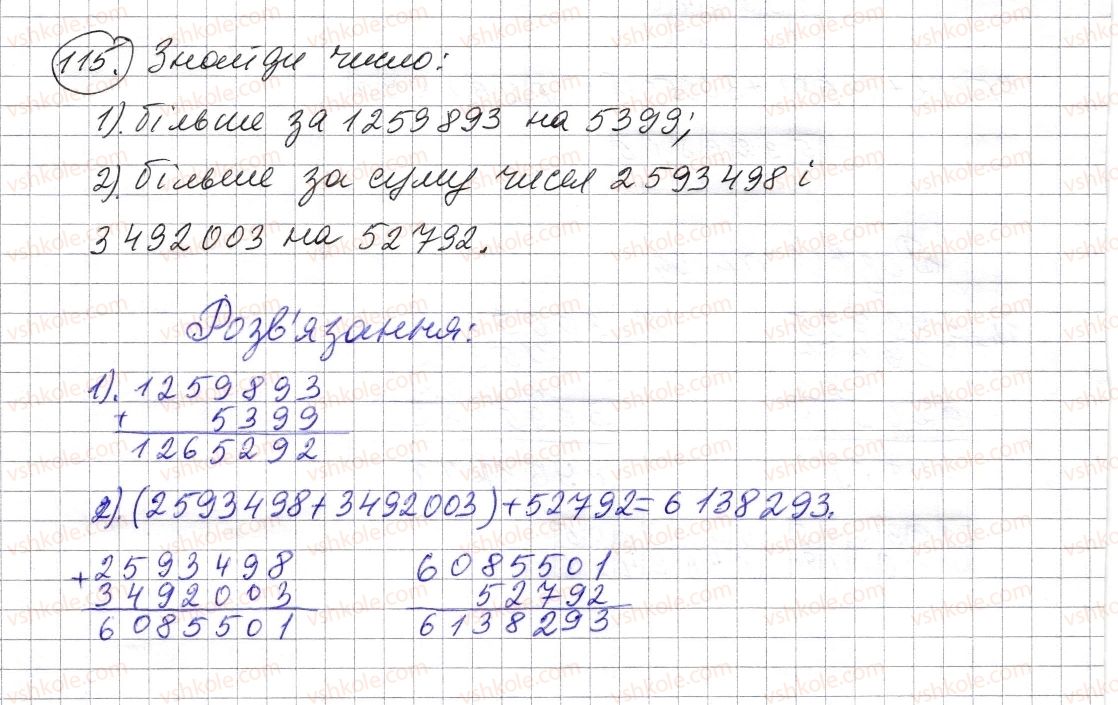 115. Знайди число:
1). більше за 1259893 на 5399;
2). більше за суму чисел 2593498 і
3492003 на 52792.
Розв'язання:
1). 1259893
+ 5399
1265292
2). (2593498+3492003)+52792=6138293.
+ 2593498 6085501
3492003 52792
6085501 6138293